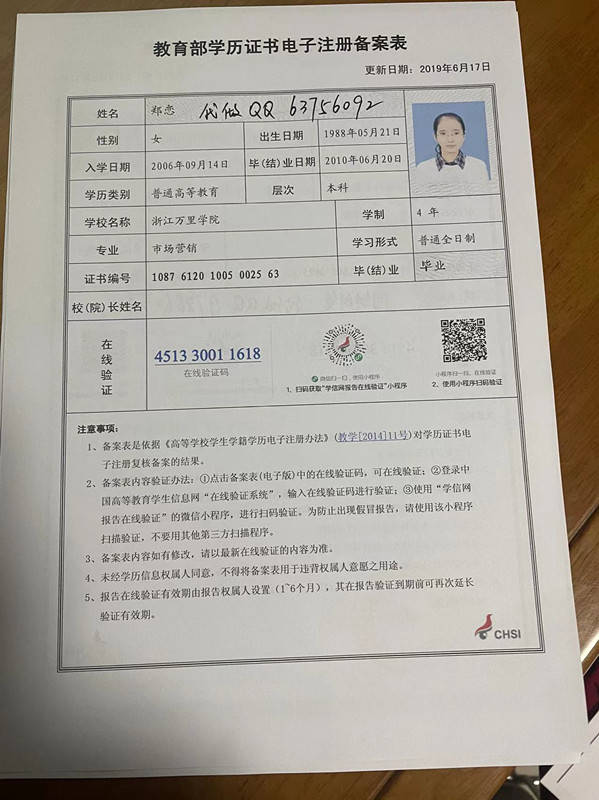 教育部学历证书电子注册备案表
更新日期：2019年6月17日
姓名 郑恋 代做QQ 63756092
性别 女 出生日期 1988年05月21日
入学日期 2006年09月14日 毕(结)业日期 2010年06月20日
学历类别 普通高等教育 层次 本科
学校名称 浙江万里学院 学制 4 年
专业 市场营销 学习形式 普通全日制
证书编号 1087 6120 1005 0025 63 毕(结)业 毕业
校(院)长姓名
在线验证
4513 3001 1618
在线验证码
微信扫一扫，使用小程序
1、扫码获取"学信网报告在线验证"小程序
小程序扫一扫，在线验证
2、使用小程序扫码验证
注意事项：
1、备案表是依据《高等学校学生学籍学历电子注册办法》(教学[2014]11号)对学历证书电
子注册复核备案的结果。
2、备案表内容验证办法：①点击备案表(电子版)中的在线验证码，可在线验证；②登录中
国高等教育学生信息网“在线验证系统”，输入在线验证码进行验证；③使用“学信网
报告在线验证”的微信小程序，进行扫码验证。为防止出现假冒报告，请使用该小程序
扫描验证，不要用其他第三方扫描程序。
3、备案表内容如有修改，请以最新在线验证的内容为准。
4、未经学历信息权属人同意，不得将备案表用于违背权属人意愿之用途。
5、报告在线验证有效期由报告权属人设置（1~6个月），其在报告验证到期前可再次延长
验证有效期。
CHSI